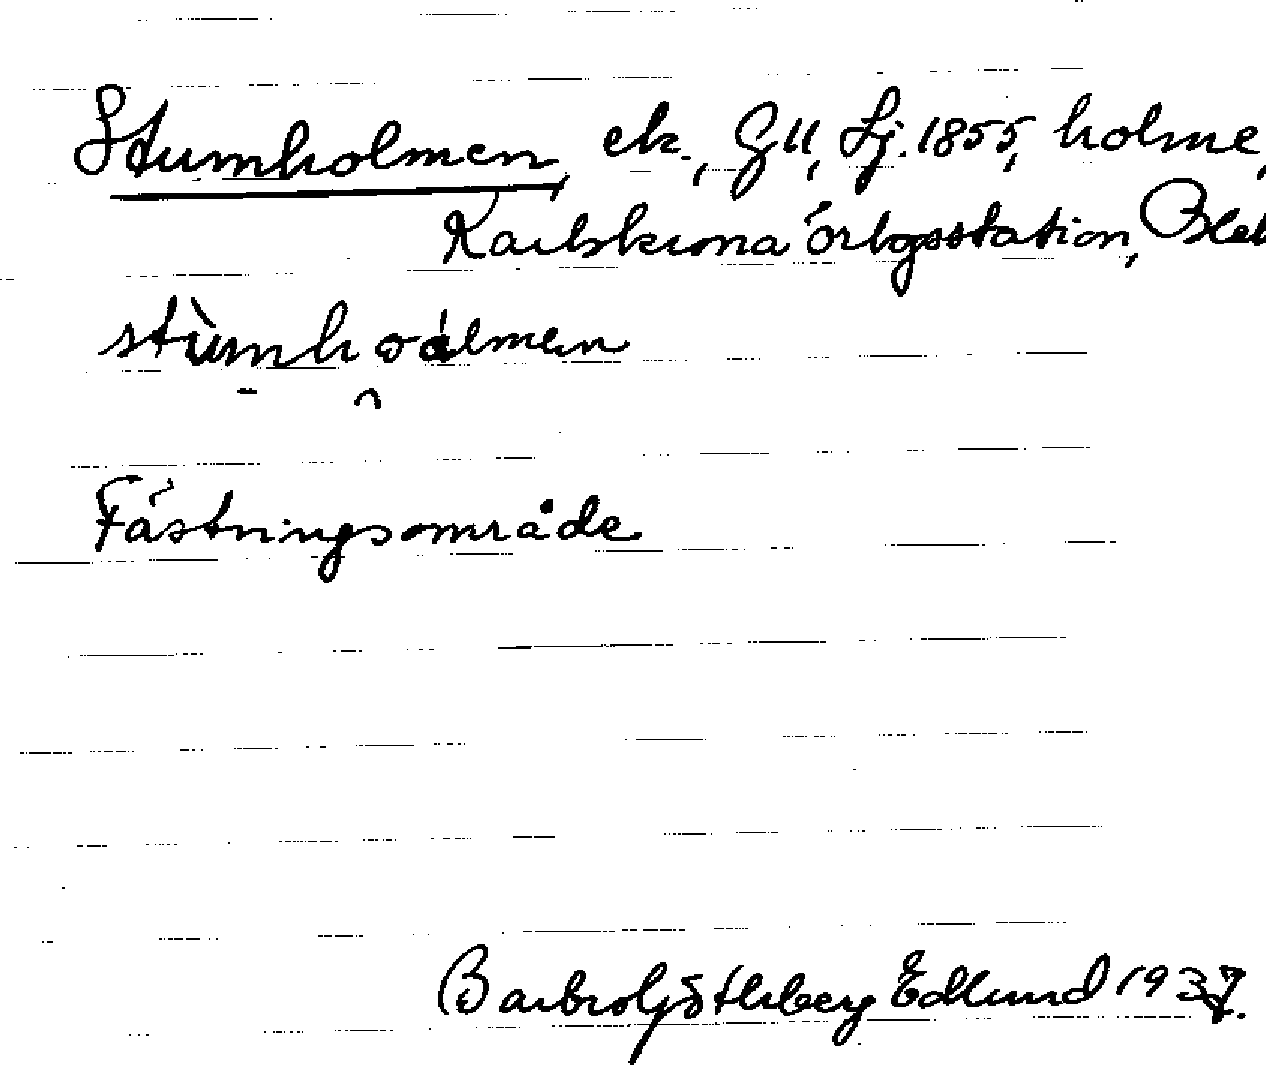 Stumholmen, ek., G11, Sj. 1855, holme,
Karlskrona örlogsstation, Blek
stùmhoálmen
Fästningsområde.
Barbro Götlsberg Edlund 1937.